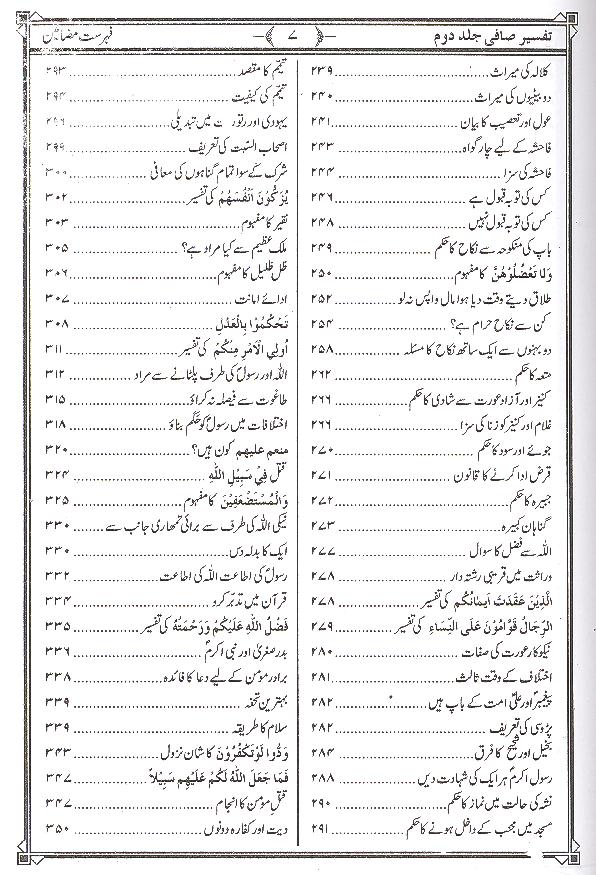 تفسیر صافی جلد دوم
﴿ ۷ ﴾
فہرست مضامین
کلالہ کی میراث ............ ۲۳۹
دو بیٹیوں کی میراث ............ ۲۴۰
عول اور تعصیب کا بیان ............ ۲۴۱
فاحشہ کے لیے چار گواہ ............ ۲۴۳
فاحشہ کی سزا ............ ۲۴۴
کس کی توبہ قبول ہے ............ ۲۴۶
کس کی توبہ قبول نہیں ............ ۲۴۸
باپ کی منکوحہ سے نکاح کا حکم ............ ۲۴۹
وَلَا تَعْضُلُوْهُنَّ کا مفہوم ............ ۲۵۰
طلاق دیتے وقت دیا ہوا مال واپس نہ لو ............ ۲۵۲
کن سے نکاح حرام ہے؟ ............ ۲۵۴
دو بہنوں سے ایک ساتھ نکاح کا مسئلہ ............ ۲۵۸
متعہ کا حکم ............ ۲۶۲
کنیز اور آزاد عورت سے شادی کا حکم ............ ۲۶۶
غلام اور کنیز کو زنا کی سزا ............ ۲۶۶
جوئے اور سود کا حکم ............ ۲۷۰
قرض ادا کرنے کا قانون ............ ۲۷۱
جبیرہ کا حکم ............ ۲۷۲
گناہان کبیرہ ............ ۲۷۳
اللہ سے فضل کا سوال ............ ۲۷۷
وراثت میں قریبی رشتہ دار ............ ۲۷۸
الَّذِيْنَ عَقَدَتْ اَيْمَانُكُم کی تفسیر ............ ۲۷۸
الرِّجَالُ قَوَّامُوْنَ عَلَى النِّسَاءِ کی تفسیر ............ ۲۷۹
نیکوکار عورت کی صفات ............ ۲۸۰
اختلاف کے وقت ثالث ............ ۲۸۱
پیغمبرؐ اور علیؑ امت کے باپ ہیں ............ ۲۸۲
پڑوسی کی تعریف ............ ۲۸۲
بخیل اور شحیح کا فرق ............ ۲۸۴
رسول اکرمؐ ہر ایک کی شہادت دیں ............ ۲۸۸
نشہ کی حالت میں نماز کا حکم ............ ۲۹۰
مسجد میں مجنب کے داخل ہونے کا حکم ............ ۲۹۱
تیمّم کا مقصد ............ ۲۹۳
تیمّم کی کیفیت ............ ۲۹۴
یہودی اور میں تبدیلی ............ ۲۹۶
اصحاب السّبت کی تعریف ............ ۲۹۹
شرک کے سوا تمام گناہوں کی معافی ............ ۳۰۰
يُزَكُّوْنَ اَنْفُسَهُمْ کی تفسیر ............ ۳۰۲
نقیر کا مفہوم ............ ۳۰۳
ملک عظیم سے کیا مراد ہے؟ ............ ۳۰۵
ظلّ ظلیل کا مفہوم ............ ۳۰۶
ادائے امانت ............ ۳۰۷
تَحْكُمُوْا بِالْعَدْلِ ............ ۳۰۸
اُولِي الْاَمْرِ مِنْكُمْ کی تفسیر ............ ۳۱۱
اللہ اور رسولؐ کی طرف پلٹانے سے مراد ............ ۳۱۲
طاغوت سے فیصلہ نہ کراؤ ............ ۳۱۵
اختلافات میں رسولؐ کو حَکَم بناؤ ............ ۳۱۸
منعم علیھم کون ہیں؟ ............ ۳۲۰
قتل فِيْ سَبِيْلِ اللهِ ............ ۳۲۴
وَالْمُسْتَضْعَفِيْنَ کا مفہوم ............ ۳۲۵
نیکی اللہ کی طرف سے برائی تمھاری جانب سے ............ ۳۳۰
ایک کا بدلہ دس ............ ۳۳۰
رسولؐ کی اطاعت اللہ کی اطاعت ............ ۳۳۲
قرآن میں تدبّر کرو ............ ۳۳۴
فَضْلُ اللهِ عَلَيْكُمْ وَرَحْمَتُهُ کی تفسیر ............ ۳۳۵
بدر صغریٰ اور نبی اکرمؐ ............ ۳۳۶
برادر مومن کے لیے دعا کا فائدہ ............ ۳۳۸
بہترین تحفہ ............ ۳۳۹
سلام کا طریقہ ............ ۳۳۹
وَدُّوْا لَوْ تَكْفُرُوْنَ کا شان نزول ............ ۳۴۳
فَمَا جَعَلَ اللهُ لَكُمْ عَلَيْهِمْ سَبِيْلاً ............ ۳۴۷
قتلِ مومن کا انجام ............ ۳۴۷
دیت اور کفارہ دونوں ............ ۳۵۰